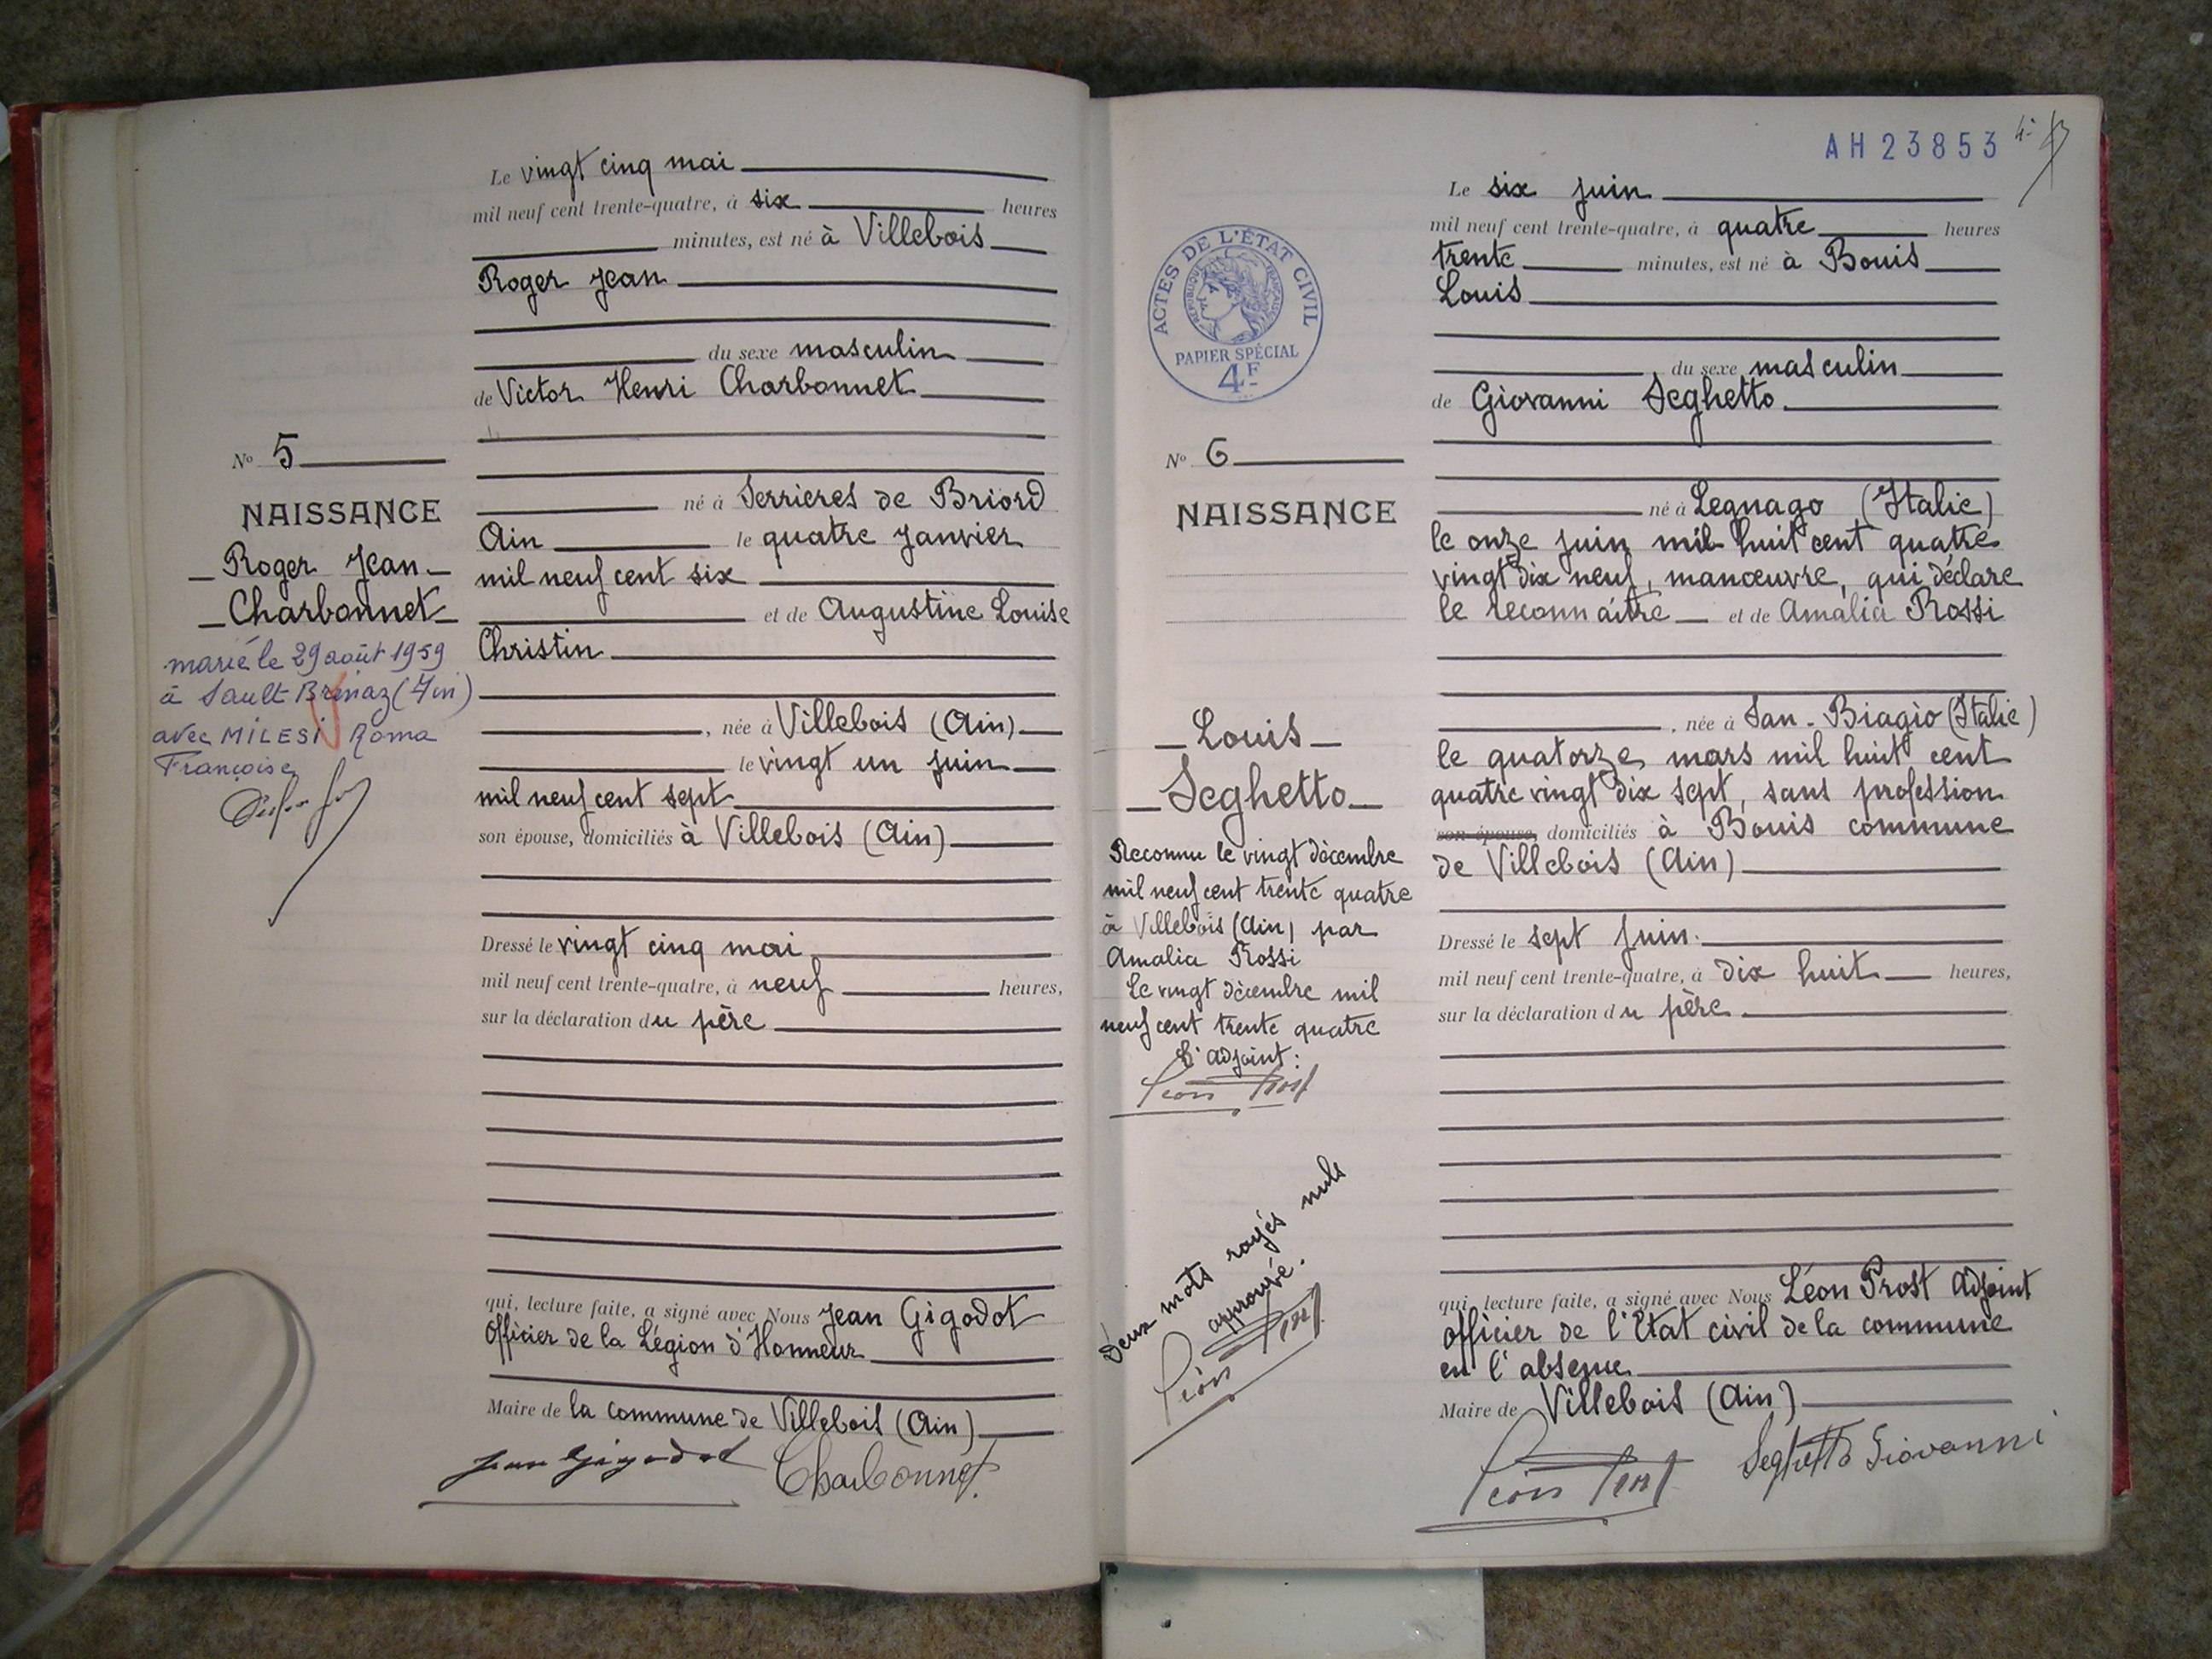 Le vingt cinq mai
mil neuf cent trente-quatre, à six heures
minutes, est né à Villebois
Roger Jean
du sexe masculin
de Victor Henri Charbonnet
né à Serrières de Briord
Ain le quatre Janvier
mil neuf cent six
et de Augustine Louise
Christin
, née à Villebois (Ain)
le vingt un juin
mil neuf cent sept
son épouse, domiciliés à Villebois (Ain)
Dressé le vingt cinq mai
mil neuf cent trente-quatre, à neuf heures,
sur la déclaration du père
qui, lecture faite, a signé avec Nous Jean Gigodot
Officier de la Légion d'Honneur
Maire de la commune de Villebois (Ain)
Jean Gigodot Charbonnet
No 5
NAISSANCE
Roger Jean
Charbonnet
marié le 29 août 1959
à Sault Brénaz (Ain)
avec MILESI Roma
Françoise
AH 23853
Le six juin
mil neuf cent trente-quatre, à quatre heures
trente minutes, est né à Bouis
Louis
du sexe masculin
de Giovanni Seghetto
né à Legnago (Italie)
le onze juin mil huit cent quatre
vingt dix neuf, manœuvre, qui déclare
le reconnaître et de Amalia Rossi
, née à San-Biagio (Italie)
le quatorze mars mil huit cent
quatre vingt dix sept, sans profession
son épouse, domiciliés à Bouis commune
de Villebois (Ain)
Dressé le sept juin.
mil neuf cent trente-quatre, à dix huit heures,
sur la déclaration du père
qui, lecture faite, a signé avec Nous Léon Prost Adjoint
officier de l'Etat civil de la commune
en l'absence
Maire de Villebois (Ain)
Léon Prost Seghetto Giovanni
ACTES DE L'ÉTAT CIVIL
RÉPUBLIQUE FRANÇAISE
PAPIER SPÉCIAL
4F
No 6
NAISSANCE
Louis
Seghetto
Reconnu le vingt décembre
mil neuf cent trente quatre
à Villebois (Ain) par
Amalia Rossi
Le vingt décembre mil
neuf cent trente quatre
L'adjoint:
Léon Prost
Deux mots rayés nuls
approuvé.
Léon Prost